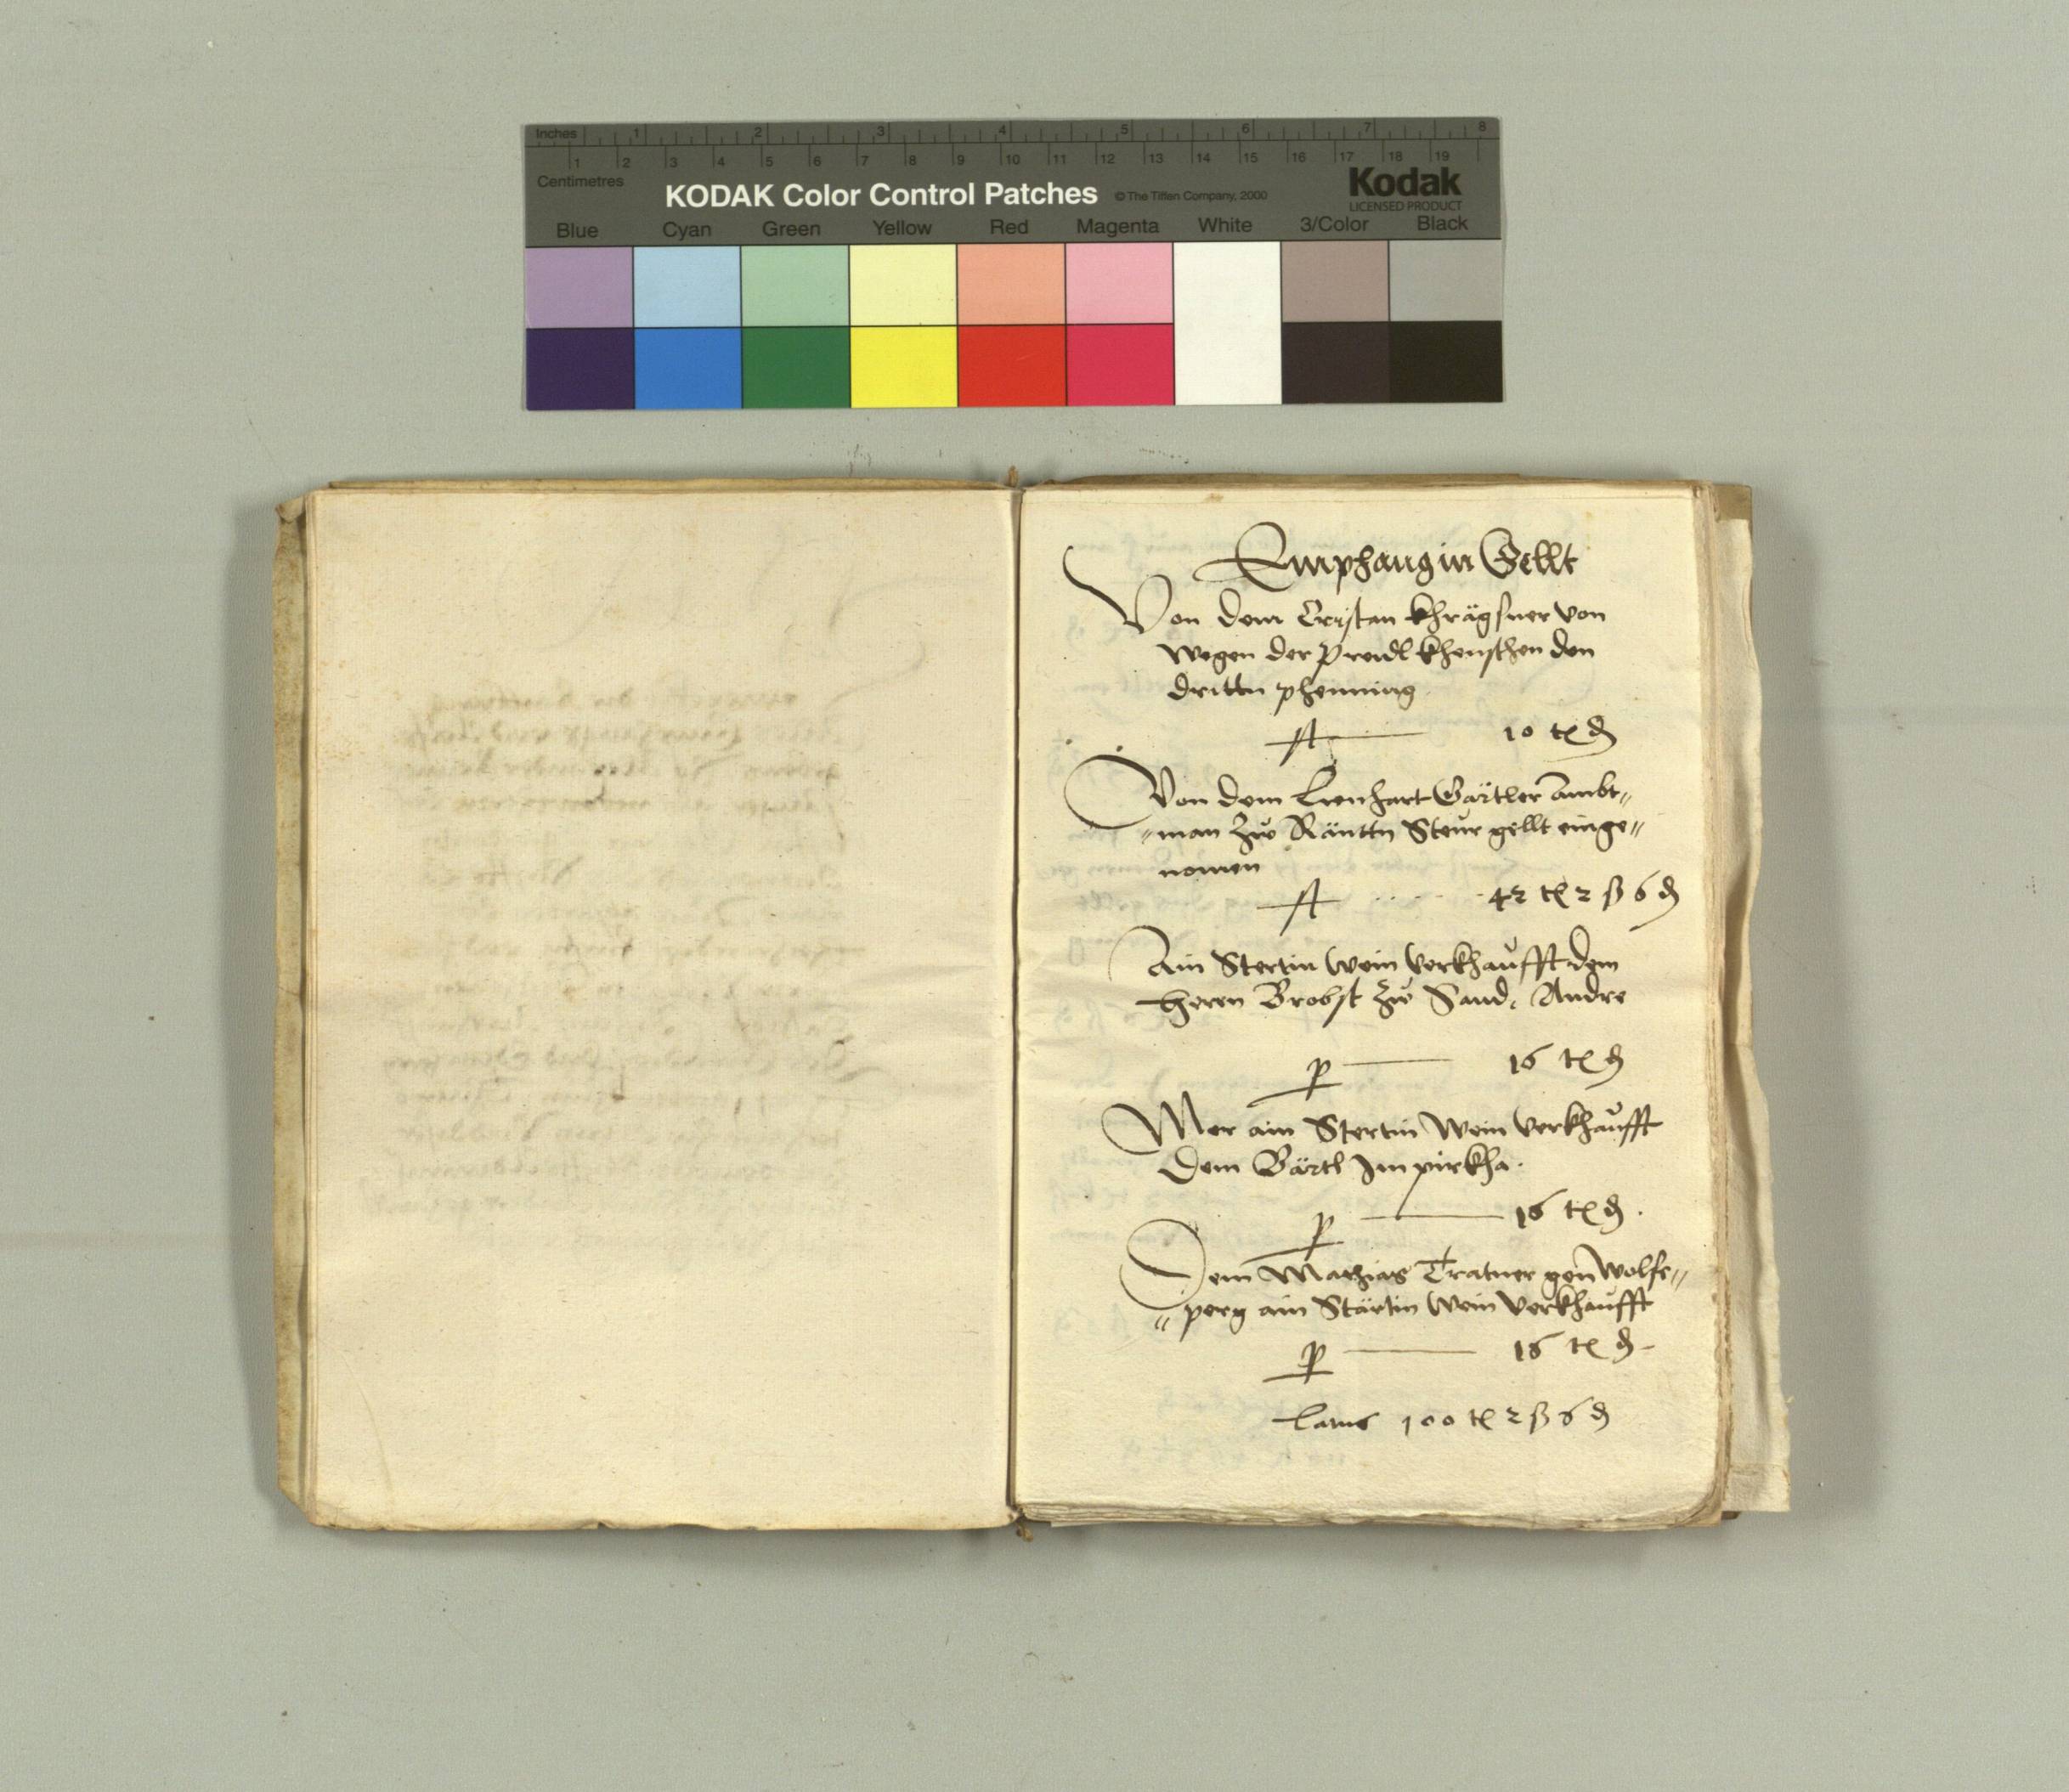 Inches 1 2 3 4 5 6 7 8
1 2 3 4 5 6 7 8 9 10 11 12 13 14 15 16 17 18 19
Centimetres
KODAK Color Control Patches © The Tiffen Company, 2000 Kodak
LICENSED PRODUCT
Blue Cyan Green Yellow Red Magenta White 3/Color Black
Emphang in Gellt
Von dem Cristan von
wegen der khenschen den
dritten phenning
10 tl ₰
Von dem Lienhart Gärtler Ambt〃
〃man zuͦ Ränttn Steur gellt einge〃
nomen
42 tl 2 ß 6 ₰
Ain Stertin Wein verkhaufft dem
herrn Brobst zuͦ Sand. Andre
p 16 tl ₰
Mer ain Stertin Wein verkhaufft
dem Bärtl Im pirkha.
p 16 tl ₰.
Dem Mathias Tratner gen Wolfs〃
〃perg ain Stärtin Wein verkhaufft
p 16 tl ₰
Latus 100 tl 2 ß 6 ₰